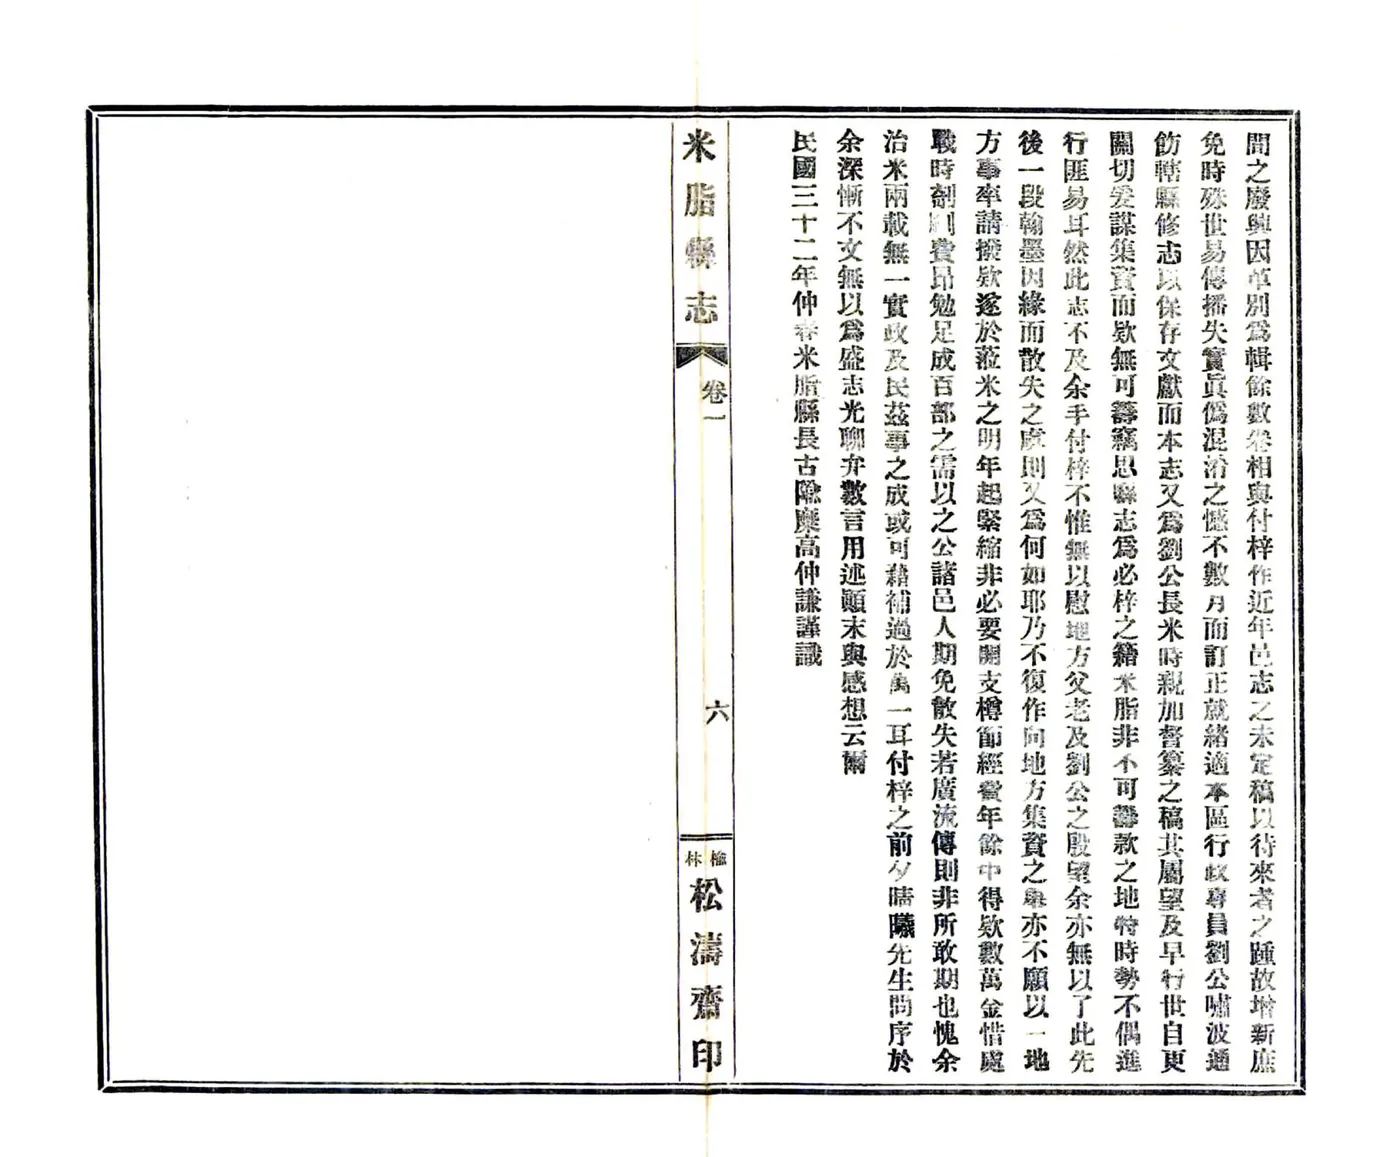 間之廢興因革別爲輯餘數卷相與付梓作近年邑志之未定稿以待來者之踵故增新庶
免時殊世易傳播失實眞僞混淆之憾不數月而訂正就緒適本區行政專員劉公嘯波通
飭轄縣修志以保存文獻而本志又爲劉公長米時親加督纂之稿其屬望及早行世自更
關切爰謀集資而欵無可籌竊思縣志爲必梓之籍米脂非不可籌款之地特時勢不偶進
行匪易耳然此志不及余手付梓不惟無以慰地方父老及劉公之殷望余亦無以了此先
後一段翰墨因緣而散失之虞則又爲何如耶乃不復作向地方集資之舉亦不願以一地
方事率請撥欵遂於蒞米之明年起緊縮非必要開支樽節經費年餘中得欵數萬金惜處
戰時剞劂費昂勉足成百部之需以之公諸邑人期免散失若廣流傳則非所敢期也愧余
治米兩載無一實政及民茲事之成或可藉補過於萬一耳付梓之前夕晴曦先生問序於
余深慚不文無以爲盛志光聊弁數言用述顚末與感想云爾
民國三十二年仲春米脂縣長古隃麋高仲謙謹識
米脂縣志
卷一
六
榆林
松濤齋印